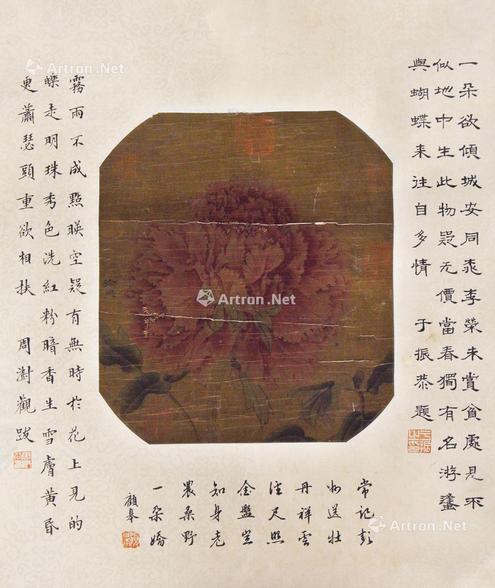 一朵欲傾城安同桃李榮未嘗貧處見不
似地中生此物疑无價當春獨有名游蜂
與蝴蝶来往自多情 于振恭題
常記彭
州送牡
丹祥雲
徑尺照
金盤豈
知身老
農桑野
一朵嬌
顧皋
霧雨不成點暎空疑有無時於花上見的
皪走明珠秀色洗紅粉暗香生雪膚黄昏
更蕭瑟頭重欲相扶 周澍觀跋
Artron.Net
Artron.Net
Artron.Net
Artron.Net
Artron.Net